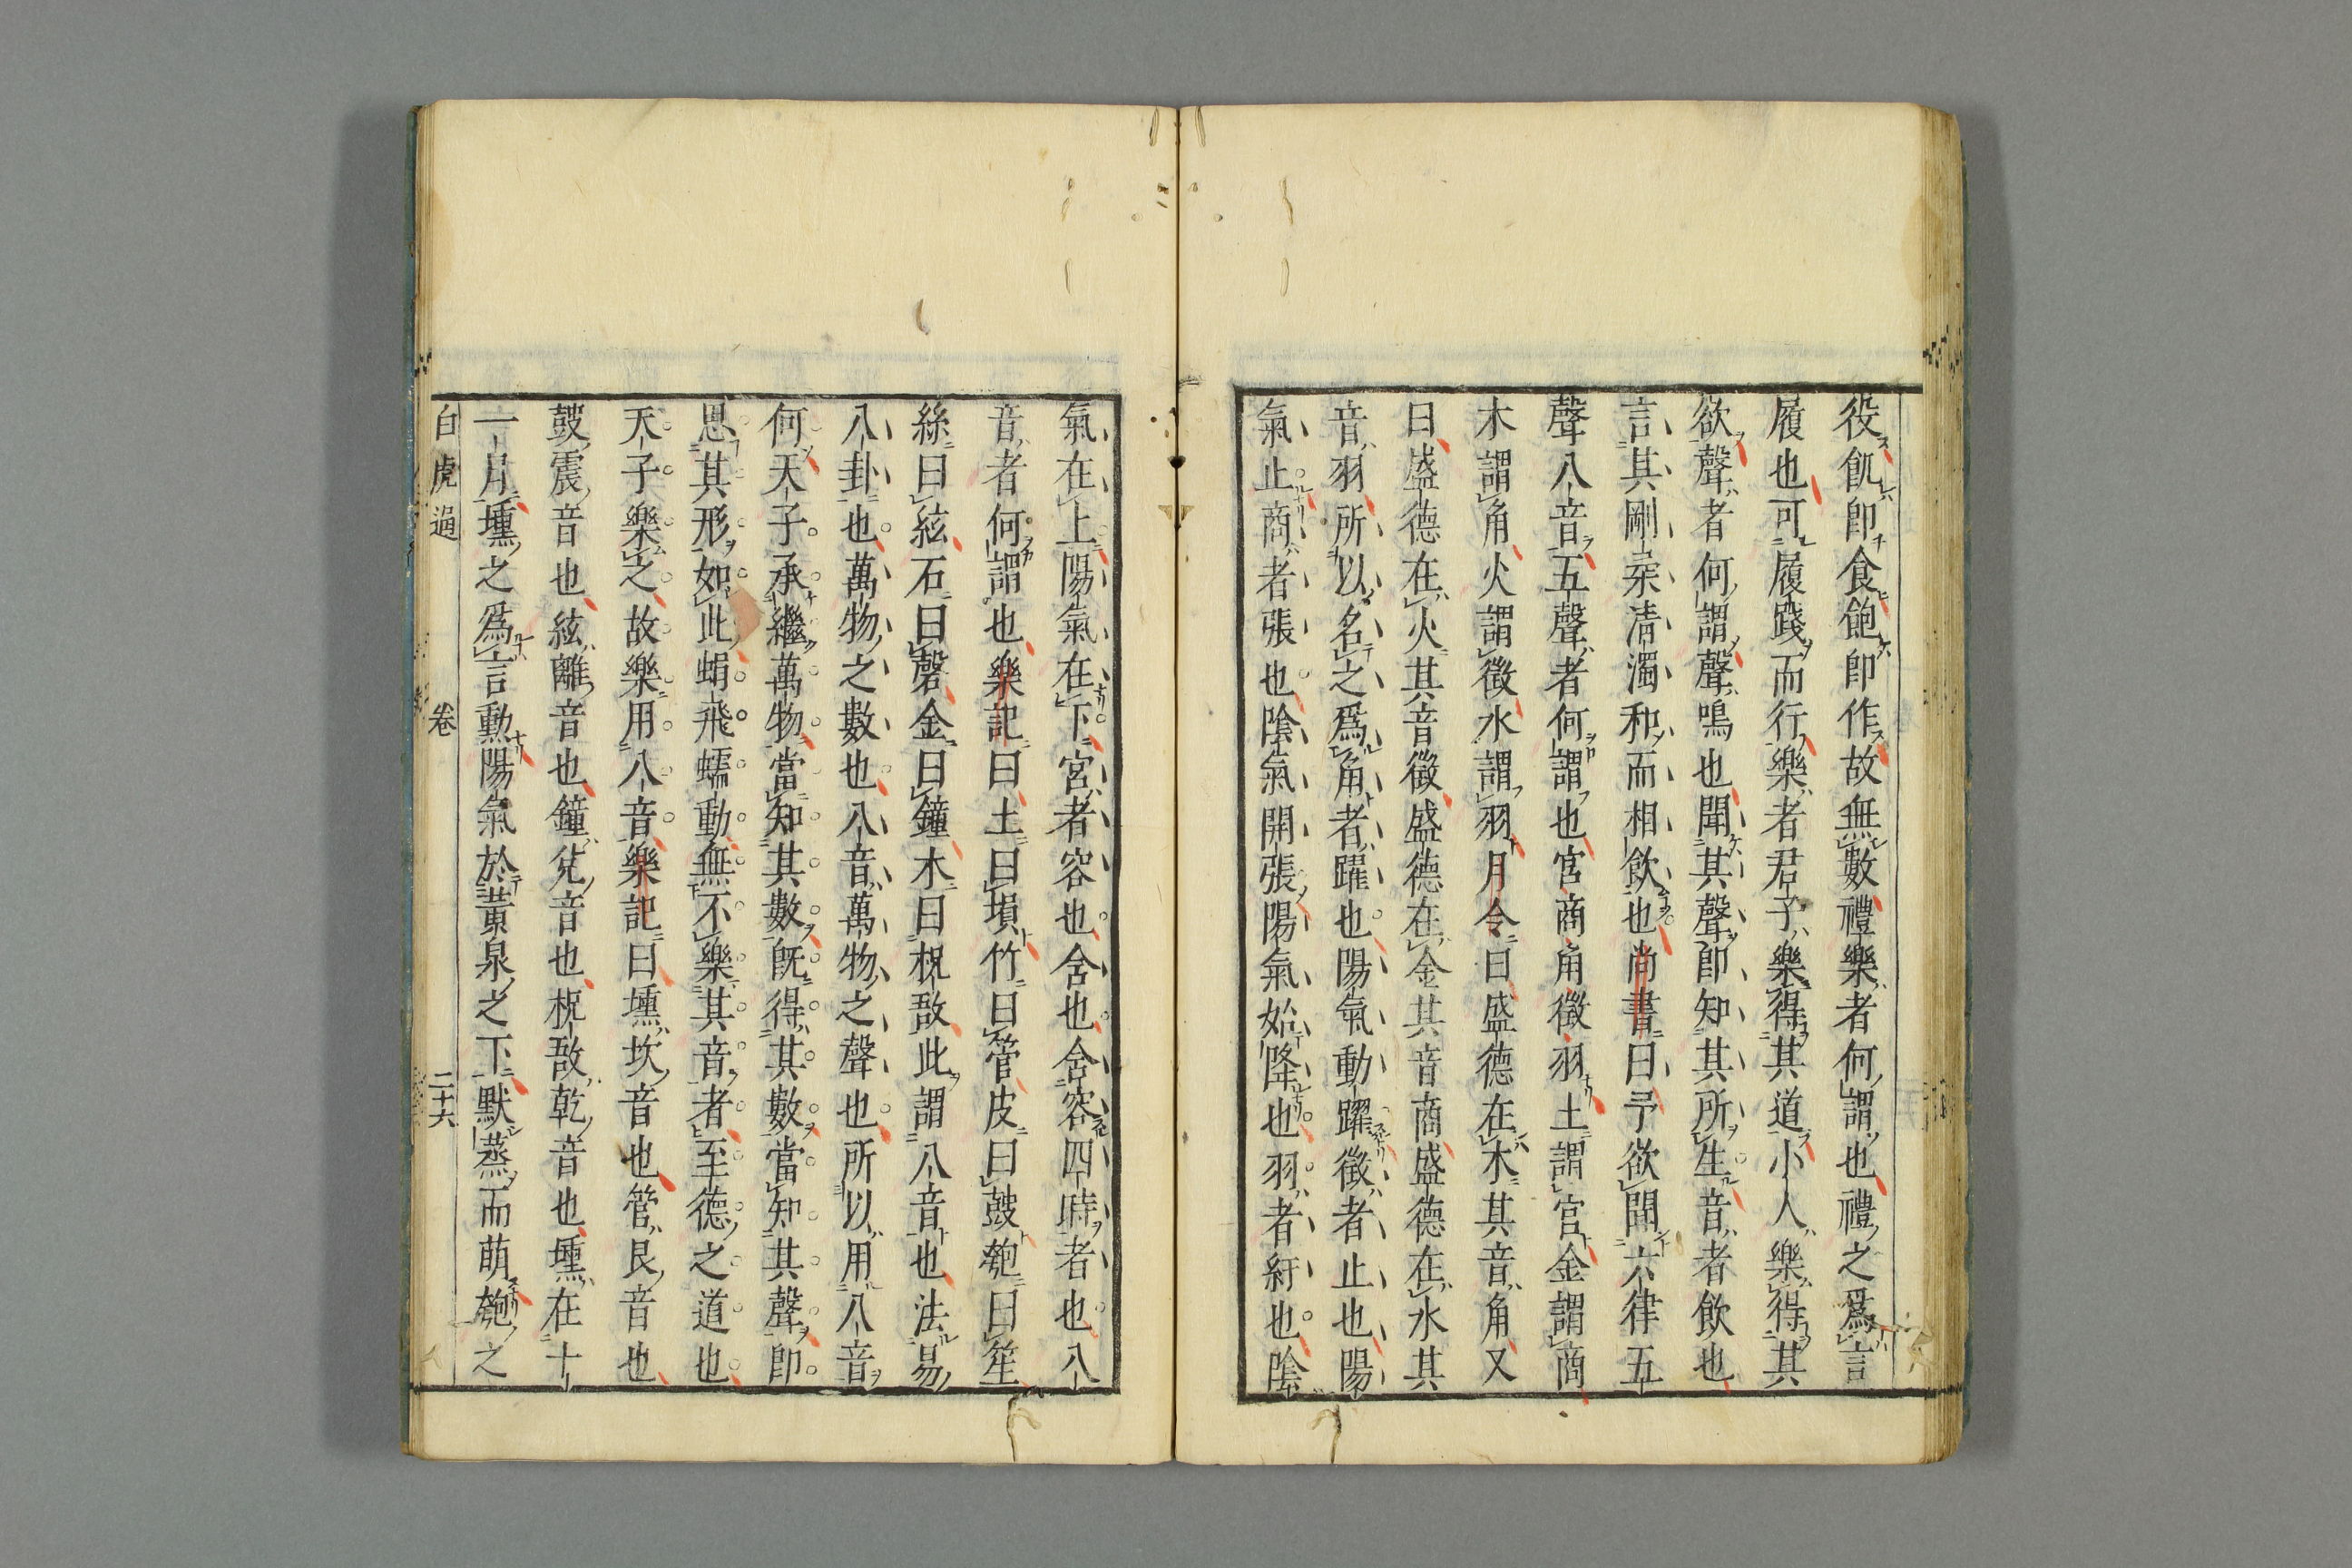 役飢即食飽即作故無數禮樂者何謂也禮之爲言
履也可履踐而行樂者君子樂得其道小人樂得其
欲聲者何謂聲鳴也聞其聲即知其所生音者飲也
言其剛柔清濁和而相飲也尚書曰予欲聞六律五
聲八音五聲者何謂也宮商角徵羽土謂宮金謂商
木謂角火謂徵水謂羽月令曰盛德在木其音角又
曰盛德在火其音徵盛德在金其音商盛德在水其
音羽所以名之爲角者躍也陽氣動躍徵者止也陽
氣止商者張也陰氣開張陽氣始降也羽者紆也陰
氣在上陽氣在下宮者容也含也含容四時者也八
音者何謂也樂記曰土曰塤竹曰管皮曰鼓匏曰笙
絲曰絃石曰磬金曰鐘木曰柷敔此謂八音也法易
八卦也萬物之數也八音萬物之聲也所以用八音
何天子承繼萬物當知其數既得其數當知其聲即
思其形如此蜎飛蠕動無不樂其音者至德之道也
天子樂之故樂用八音樂記曰壎坎音也管艮音也
鼓震音也絃離音也鐘兌音也柷敔乾音也壎在十
一月壎之爲言勳陽氣於黃泉之下默蒸而萌匏之
白虎通 卷 二十六